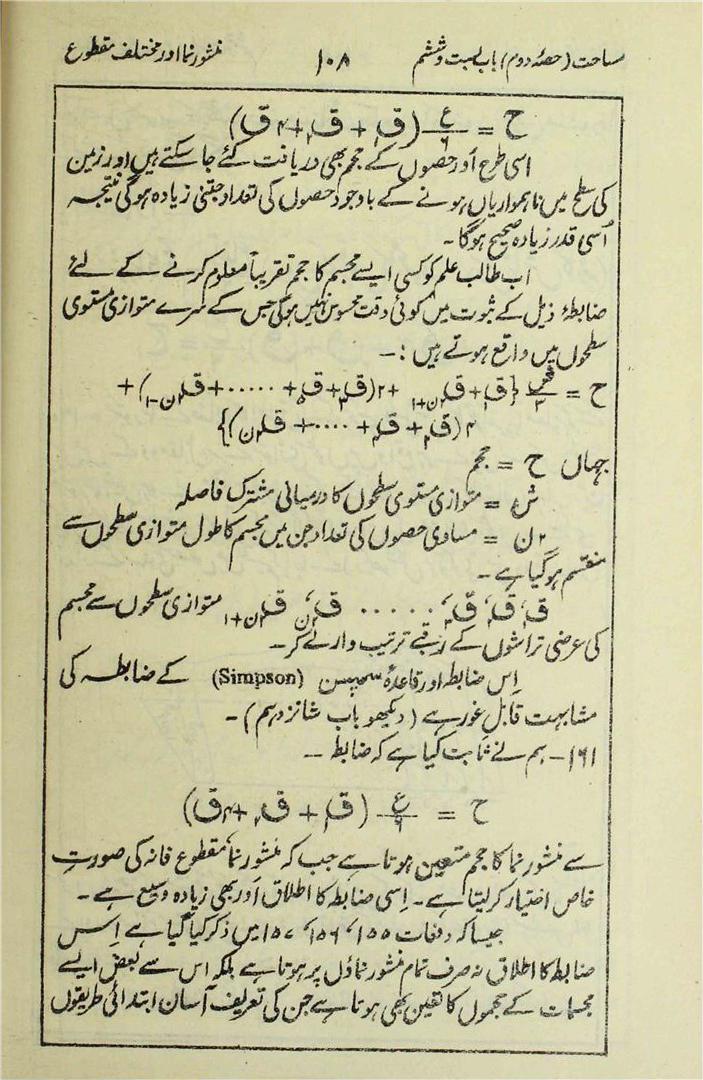 مساحت (حصۂ دوم) باب بست وششم ۱۰۸ منشور نما اور مختلف مقطوع
ح = ع/۶ (ق۱ + ق۲ + ۴ق)
اسی طرح اَور حصوں کے حجم بھی دریافت کئے جا سکتے ہیں اور زمین
کی سطح میں ناہمواریاں ہونے کے باوجود حصوں کی تعداد جتنی زیادہ ہوگی نتیجہ
اُسی قدر زیادہ صحیح ہوگا۔
اب طالب علم کو کسی ایسے مجسم کا حجم تقریباً معلوم کرنے کے لئے
ضابطۂ ذیل کے ثبوت میں کوئی دقت محسوس نہیں ہوگی جس کے سرے متوازی مستوی
سطحوں میں واقع ہوتے ہیں :۔
ح = ش/۳ {ق۱ + ق۲ن+۱ + ۲(ق۳ + ق۵ + ..... + ق۲ن−۱) +
۴(ق۲ + ق۴ + .... + ق۲ن)}
جہاں ح = حجم
ش = متوازی مستوی سطحوں کا درمیانی مشترک فاصلہ
۲ن = مساوی حصوں کی تعداد جن میں مجسم کا طول متوازی سطحوں سے
منقسم ہوگیا ہے۔
ق۱، ق۲، ق۳، ...... ق۲ن، ق۲ن+۱ متوازی سطحوں سے مجسم
کی عرضی تراشوں کے رقبے ترتیب وار لے کر۔
اِس ضابطہ اور قاعدۂ سمپسن (Simpson) کے ضابطہ کی
مشابہت قابل غور ہے (دیکھو باب شانزدہم)۔
۱۶۱۔ ہم نے ثابت کیا ہے کہ ضابطہ ۔۔
ح = ع/۶ (ق۱ + ق۲ + ۴ق)
سے منشور نما کا حجم متعین ہوتا ہے جب کہ منشور نما، مقطوع فانہ کی صورتِ
خاص اختیار کر لیتا ہے۔ اِسی ضابطہ کا اطلاق اَور بھی زیادہ وسیع ہے۔
جیسا کہ دفعات ۱۵۵، ۱۵۶، ۱۵۷ میں ذکر کیا گیا ہے اِس
ضابطہ کا اطلاق نہ صرف تمام منشور نماؤں پر ہوتا ہے بلکہ اس سے بعض ایسے
مجسمات کے حجموں کا تعین بھی ہوتا ہے جن کی تعریف آسان ابتدائی طریقوں